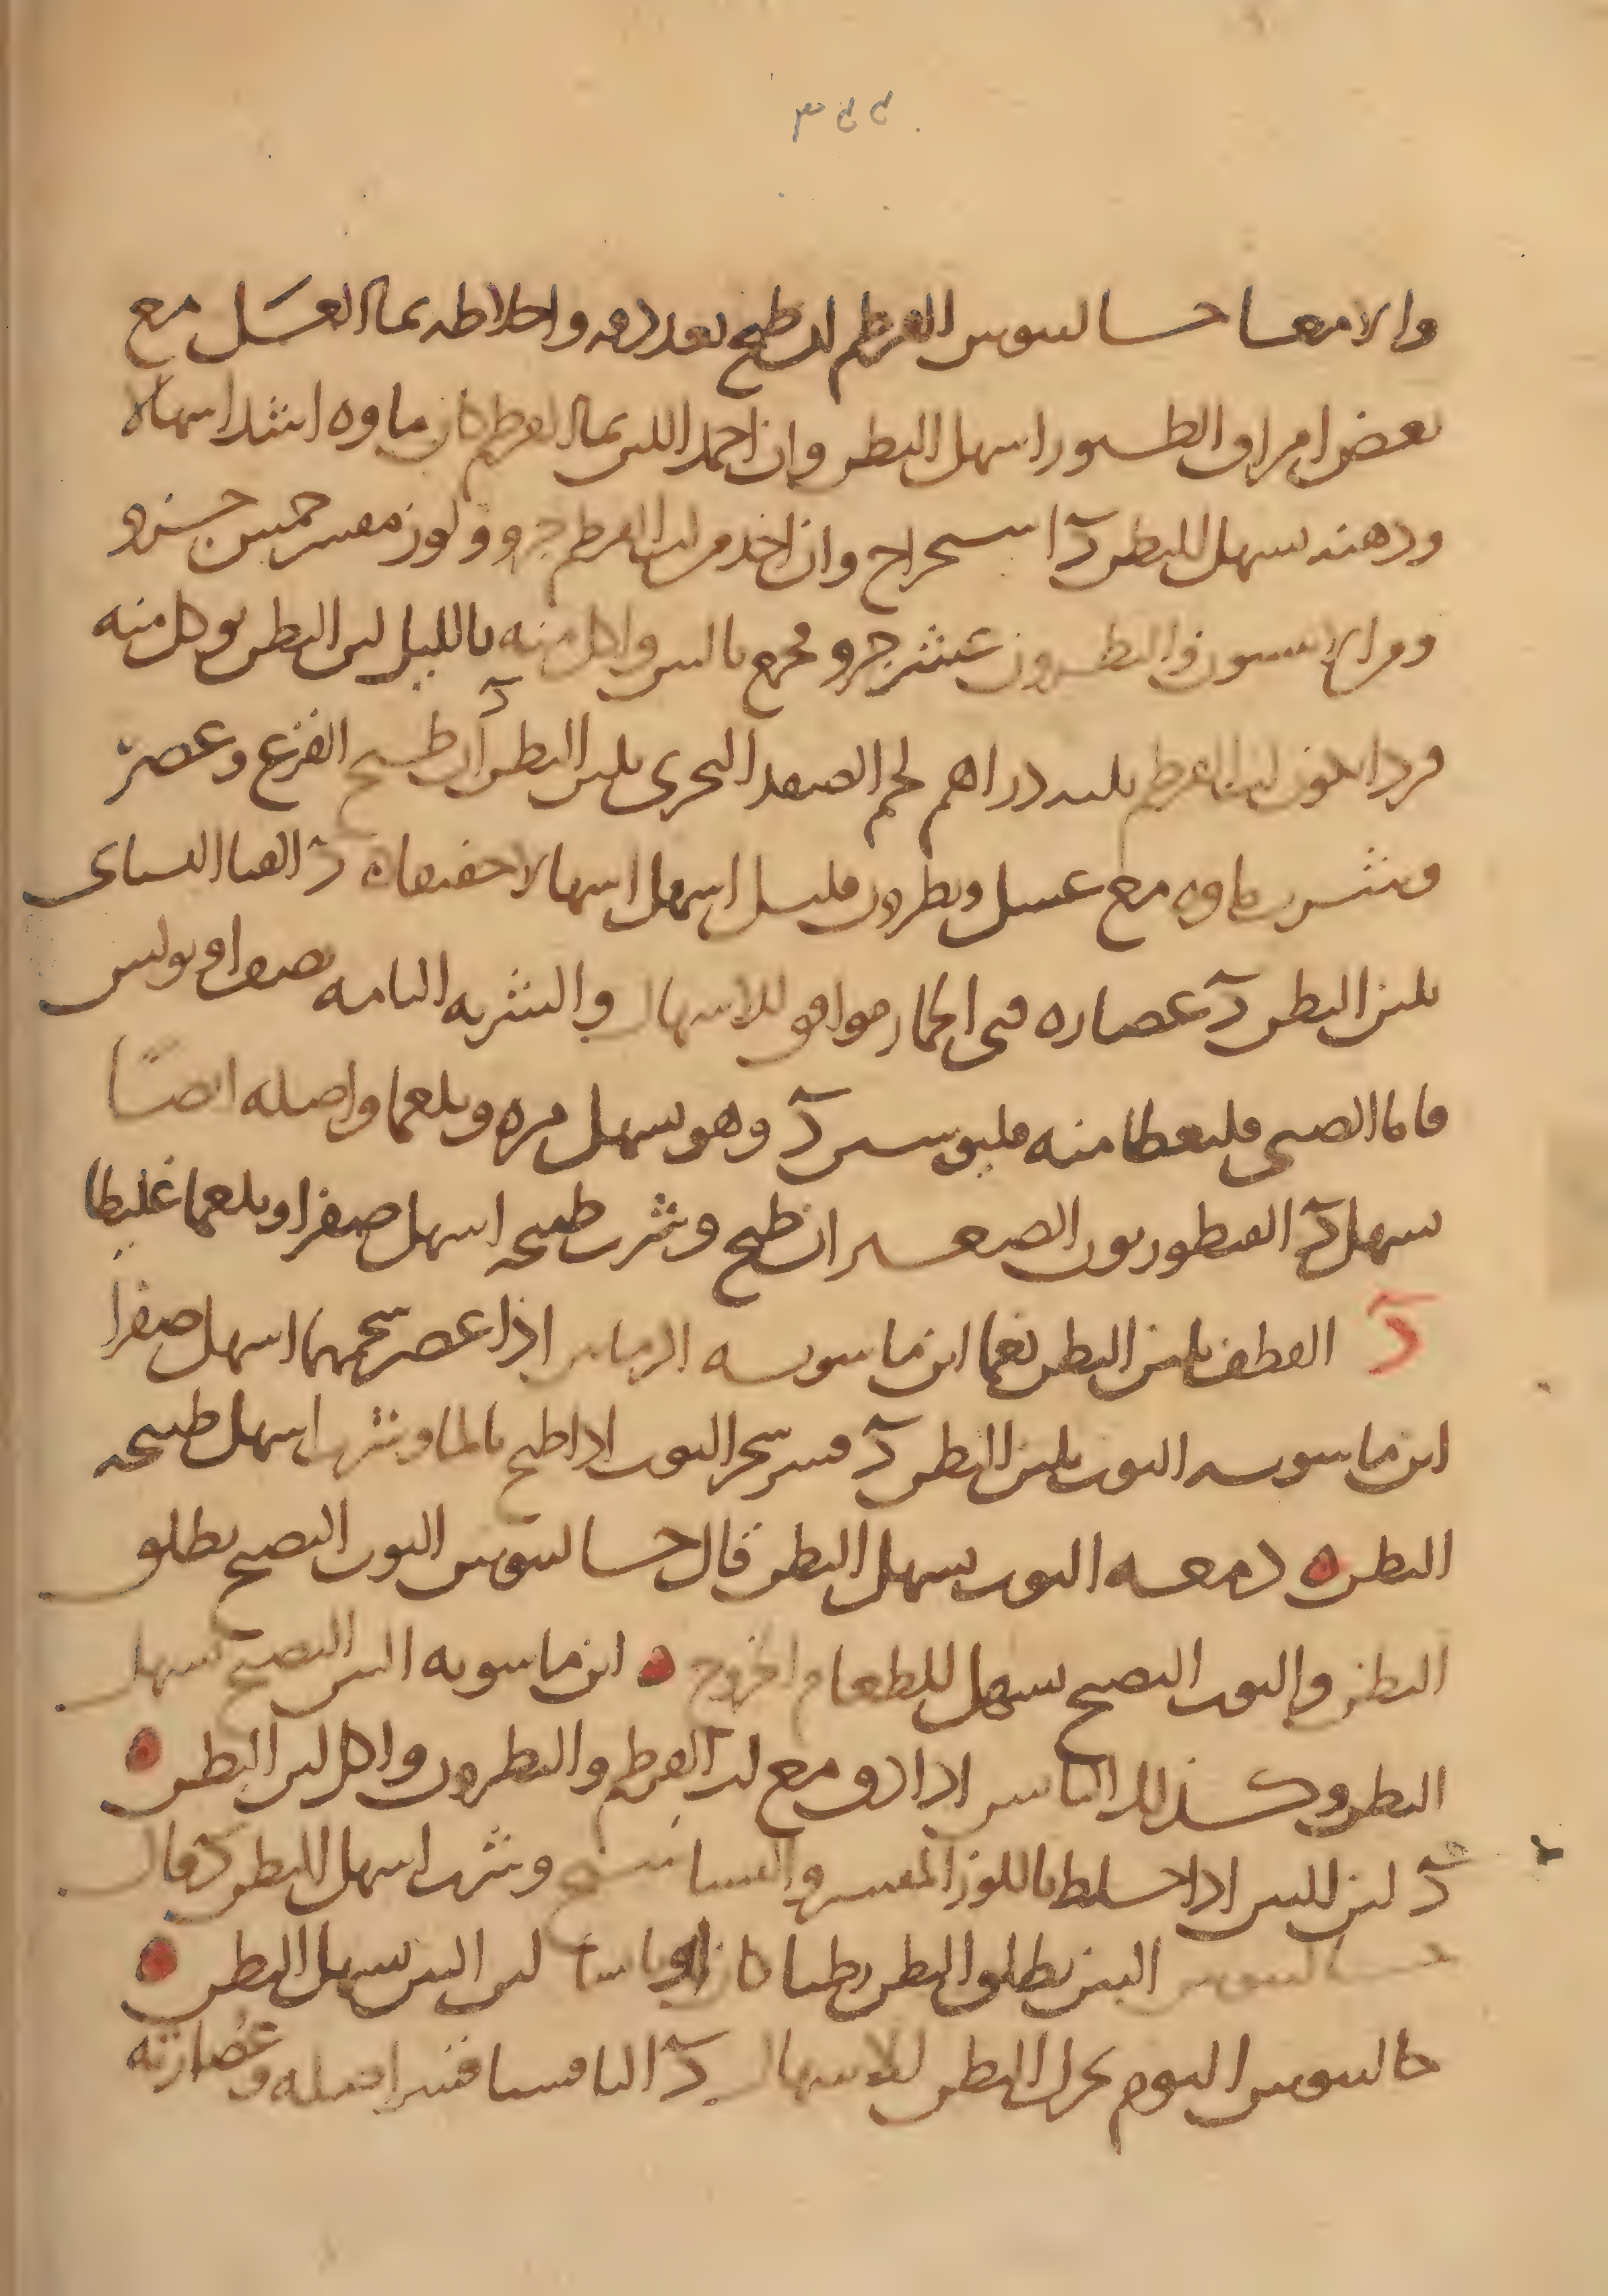 ٣٤٤
والامعا حالسوس القرطم ان طبخ بعد دقه واخلاطه بما العسل مع
بعض امراق الطيور اسهل البطن وان اجمد اللبن بما القرطم كان ماوه اشد اسهالا
ودهنه يسهل البطن دٓ وان اخذ من لب القرطم جزو ولوز مقشر خمس جزو
ومن الانيسون والنطرون عشر جزو وجمع بالتين واكل منه بالليل لين البطن يوكل منه
لب القرطم ثلثه دراهم لحم الصدف البحرى يلين البطن دٓ ان طبخ القرع وعصر
وشرب ماوه مع عسل ونطرون قليل اسهل اسهالا خفيفا دٓ القثا البستانى
يلين البطن دٓ عصاره قثى الحمار موافق للاسهال والشربه التامه نصف اوبولس
فاما الصبى فليعطا منه دٓ وهو يسهل مره وبلغما واصله ايضًا
يسهل دٓ القنطوريون الصغير ان طبخ وشرب طبيخه اسهل صفرا وبلغما غليظا
دٓ القطف يلين البطن نعما ابن ماسويه الرمانين اذا عصر شحمهما اسهل صفرا
ابن ماسويه التوت يلين البطن دٓ قشر شجر التوت اذا طبخ بالما وشرب اسهل طبيخه
البطن دمعه التوت يسهل البطن قال حالسوس التوت النضج يطلق
البطن والتوت النضج يسهل للطعام الخروج ابن ماسويه التين النضج يسهل
البطن وكذلك اليابس اذا دق مع لب القرطم والنطرون واكل لين البطن
دٓ لبن التين اذا خلط باللوز المقشر وشرب اسهل البطن دٓ قال
حالسوس التين يطلق البطن رطبا كان او يابسا لبن التين يسهل البطن
حالسوس الثوم يحرك البطن للاسهال دٓ الثافسيا قشر اصله وعصارته